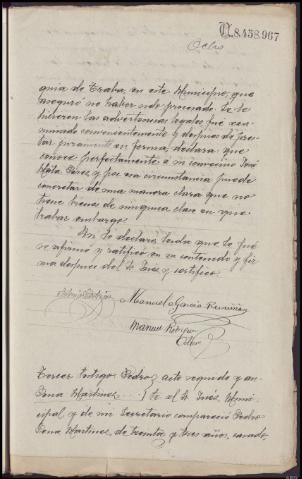 N.8.458.967
Ocho
quia de Traba, en este Municipio, que
aseguró no haber sido procesado; se le
hicieron las advertencias legales, fué exa-
minado convenientemente y después de pres-
tar juramento en forma, declara: que
conoce perfectamente a su convecino José
Mata Perez y por esa circunstancia puede
concretar de una manera clara que no
tiene bienes de ninguna clase en que
trabar embargo.
Así lo declaró, leída que le fué
se afirmó y ratificó en su contenido y fir-
ma después del Sr. Juez, y certifico.
Manuel García
Manuel
Tercer testigo Pedro Acto seguido y an-
Pena Martinez te el Sr. Juez Muni-
cipal y de mi Secretario compareció Pedro
Pena Martinez, de treinta y tres años, casado,